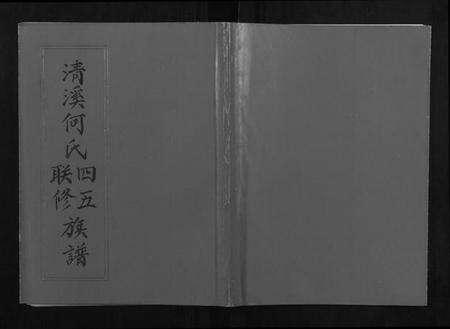 清溪何氏
四五
联修
族譜